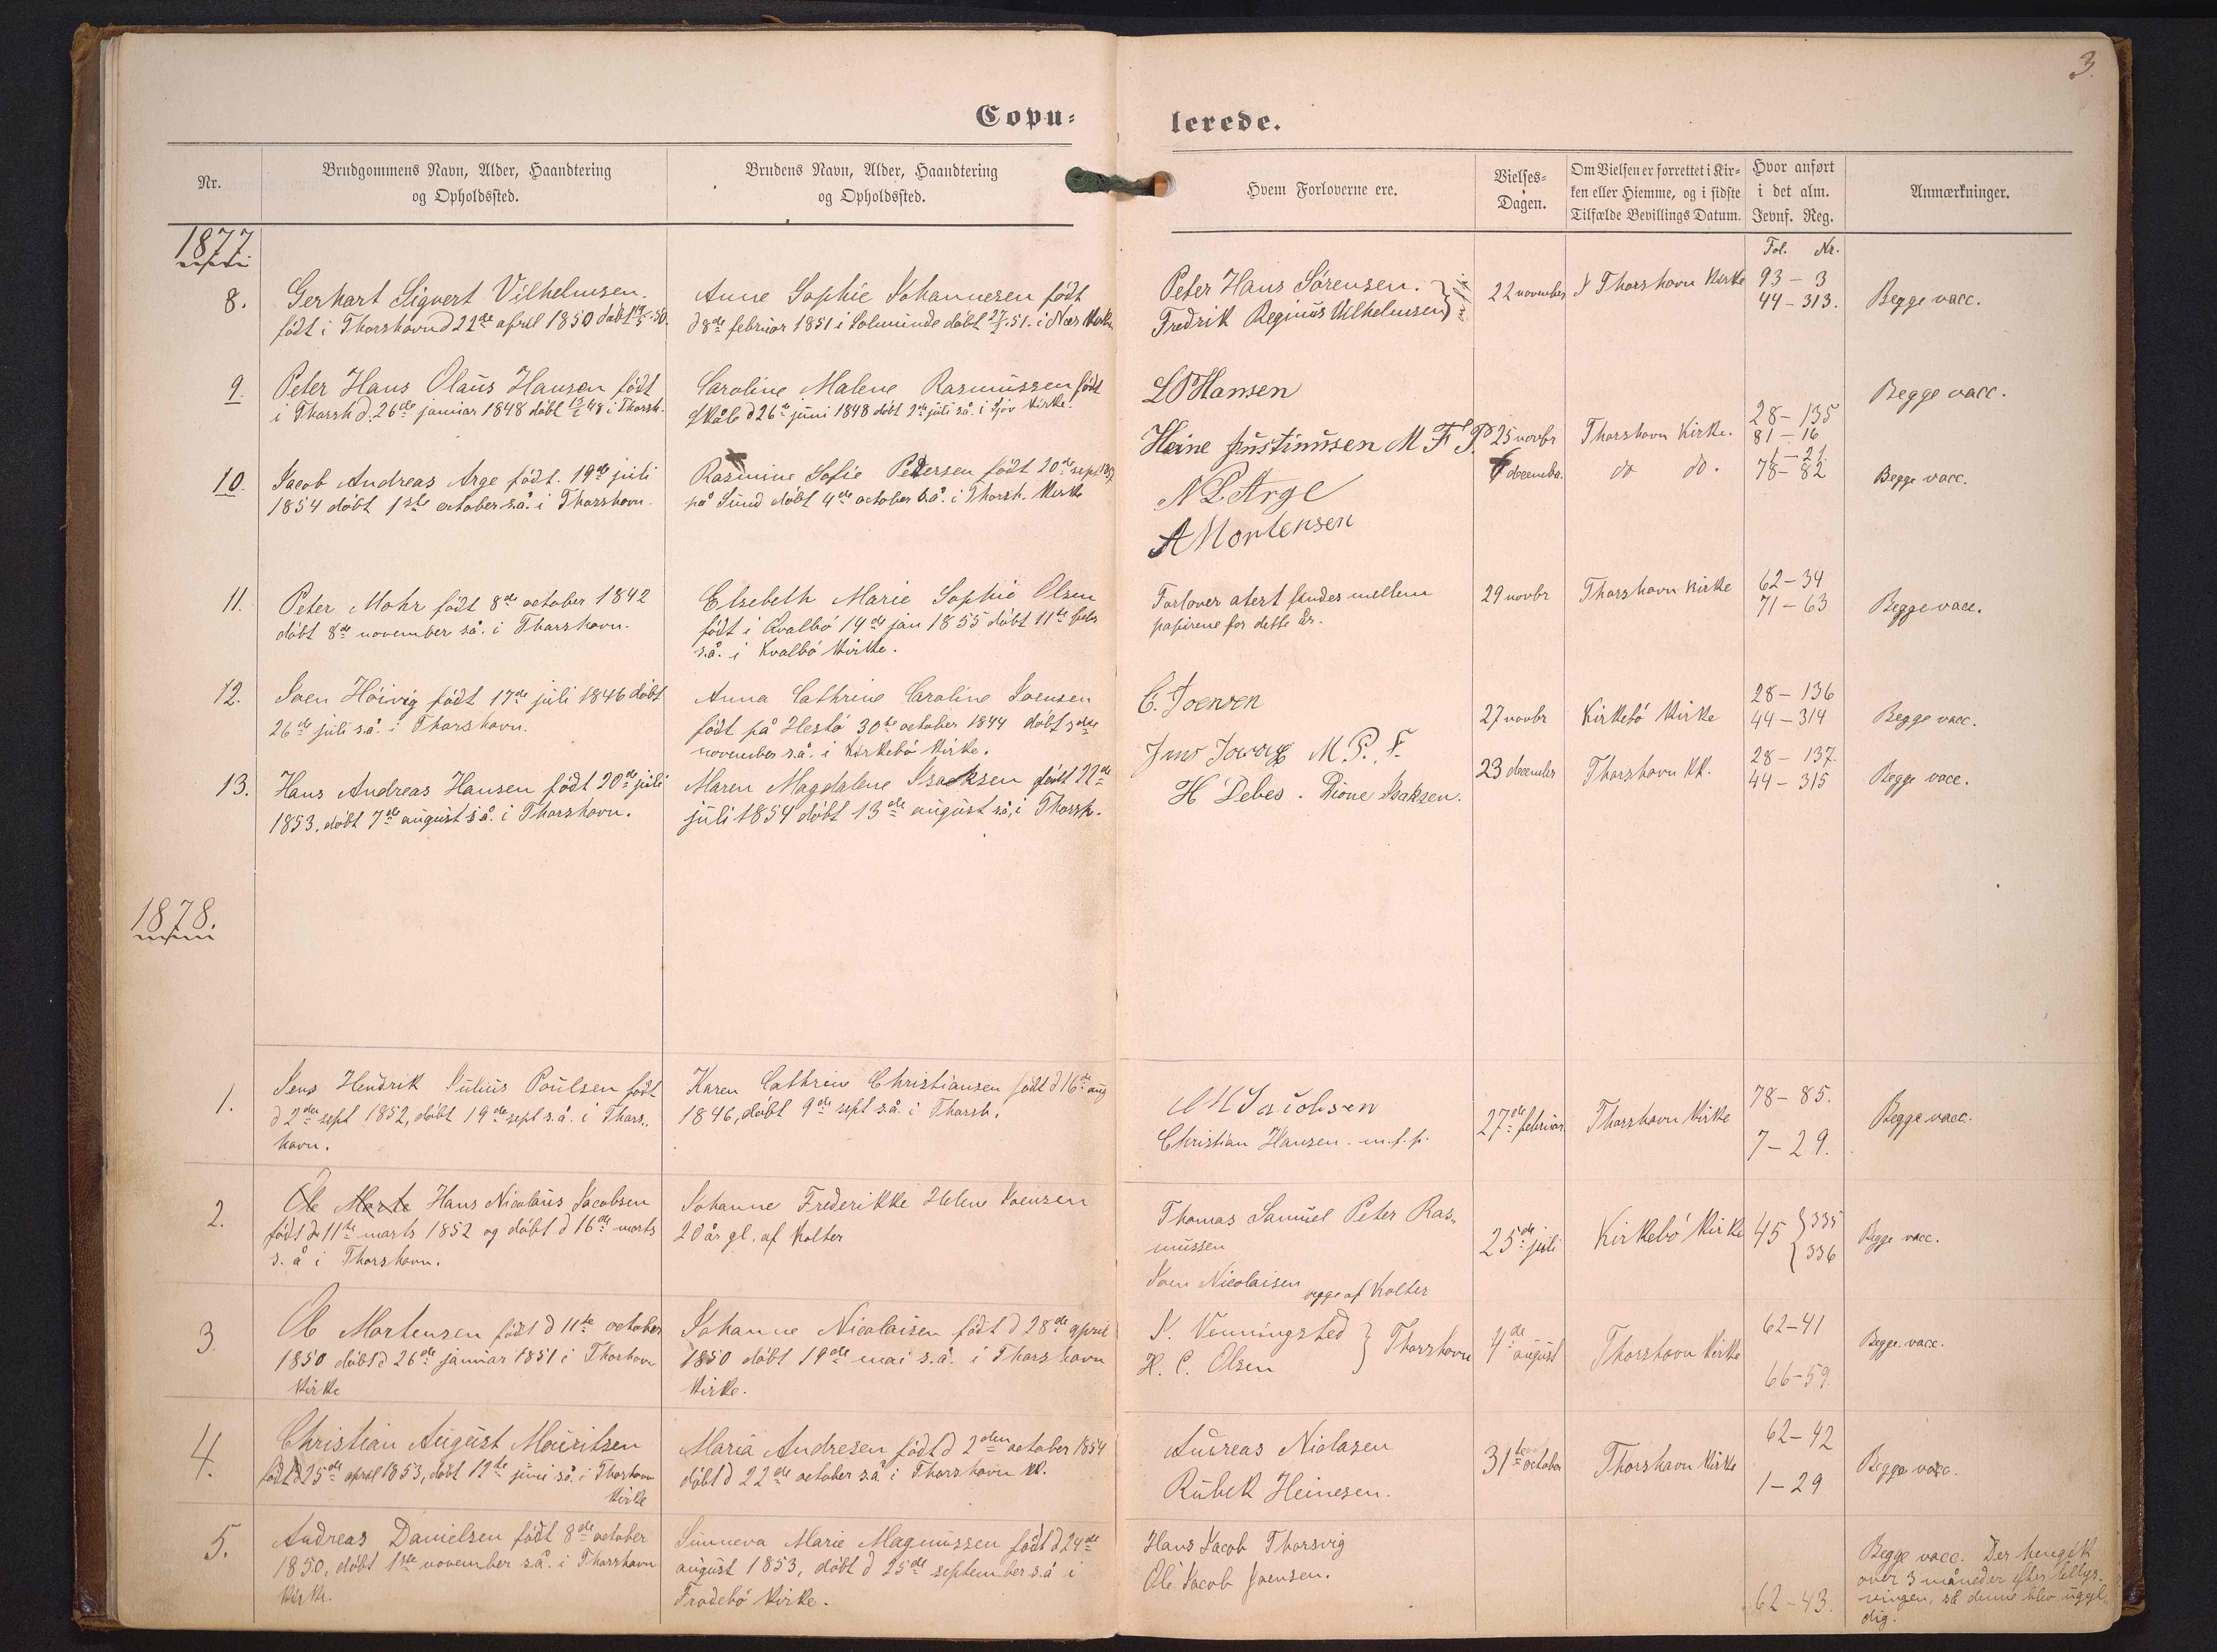 3.
Copu=
lerede.
Nr.
Brudgommens Navn, Alder, Haandtering
og Opholdssted.
Brudens Navn, Alder, Haandtering
og Opholdssted.
Hvem Forloverne ere.
Vielses=
Dagen.
Om Vielsen er forrettet i Kir=
ken eller Hiemme, og i sidste
Tilfælde Bevillings Datum.
Hvor anført
i det alm.
Jevnf. Reg.
Anmærkninger.
Fol. Nr.
1877
8.
Gerhart Sigvert Vilhelmsen.
født i Thorshavn d 22de april 1850 døbt 19/5 50.
Anne Sophie Johannesen født
d 8de februar 1851 i Solmunde døbt 27/4 51. i Næs Kirke
Peter Hans Sørensen.
Fredrik Reginus Vilhelmsen
22 november
I Thorshavn Kirke
93 – 3
44 – 313.
Begge vacc.
9.
Peter Hans Olaus Hansen født
i Thorsh d. 26de januar 1848 døbt 13/2 48 i Thorsh.
Caroline Malene Rasmussen født
Skåle d 26de juni 1848 døbt 2de juli s.å. i Sjov Kirke.
L P Hansen
Heine Justinussen M F P.
25 novbr
Thorshavn Kirke.
28 – 135
81 – 16
Begge vacc.
10.
Jacob Andreas Arge født. 19de juli
1854 døbt 1ste october s.å. i Thorshavn.
Rasmine Sofie Petersen født 20de sept 1857
på Sund døbt 4de october s.å. i Thorsh. Kirke
N L Arge
A Mortensen
6 decembr.
do do.
1 – 21.
78 – 82
Begge vacc.
11.
Peter Mohr født 8de october 1842
døbt 8de november s.å. i Thorshavn.
Elsebeth Marie Sophie Olsen
født i Qvalbø 14de jan 1855 døbt 11te febr
s.å. i Kvalbø Kirke.
Forlover atest findes mellem
papirene for dette år.
29 novbr
Thorshavn Kirke
62 – 34
71 – 63
Begge vacc.
12.
Joen Höivig født 17de juli 1846 døbt
26de juli s.å. i Thorshavn.
Anna Cathrine Caroline Joensen
født på Hestø 30te october 1844 døbt 3die
november s.å. i Kirkebø Kirke.
C. Joensen
M. P. F.
27 novbr
Kirkebø Kirke
28 – 136
44 – 314
Begge vacc.
13.
Hans Andreas Hansen født 20de juli
1853, døbt 7de august s å. i Thorshavn.
Maren Magdalene Isacksen født 22de
juli 1854 døbt 13de august s.å, i Thorsh.
H Debes . Dione Isaksen.
23 december
Thorshavn KK.
28 – 137.
44 – 315
Begge vacc.
1878.
1.
Jens Hendrik Julius Poulsen født
d 2den sept 1852, døbt 19de sept s.å. i Thors,,
havn.
Karen Cathrine Christiansen født d 16de aug
1846, døbt 9de sept s.å. i Thorsh.
Jacobsen
Christian Hansen. m. f. p.
27de februar.
Thorshavn Kirke
78 – 85.
7 – 29.
Begge vacc.
2.
Ole Morte Hans Nicolaus Jacobsen
født d 11te marts 1852 og døbt d 16de marts
s. å i Thorshavn.
Johanne Frederikke Helene Joensen
20 år gl. af Kolter
Thomas Samuel Peter Ras,,
mussen
Joen Nicolaisen begge af Kolter
25de juli
Kirkebø Kirke
45 { 335
336
Begge vacc.
3.
Ole Mortensen født d 11te october
1850 døbt d 26de januar 1851 i Thorshavn
Kirke
Johanne Nicolaisen født d 28de april
1850 døbt 19de mai s.å. i Thorshavn
Kirke.
Venningsted
H. C. Olsen
} Thorshavn
4de august
Thorshavn Kirke
62 – 41
66 – 59.
Begge vacc.
4.
Christian August Mouritsen
født d 25de april 1853, døbt 12te juni s.å. i Thorshavn
Kirke
Maria Andresen født d 2den october 1854
døbt d 22de october s.å i Thorshavn KK.
Andreas Niclasen
Rubek Heinesen.
31te october
Thorshavn Kirke
62 – 42
1 – 29
Begge vacc.
5.
Andreas Danielsen født 8de october
1850, døbt 1ste november s.å. i Thorshavn
Kirke.
Sunneva Marie Magnussen født d 24de
august 1853, døbt d 25de september s.å i
Frodebø Kirke.
Hans Jacob Thorsvig
Ole Jacob Joensen.
62 – 43.
Begge vacc. Der hengik
over 3 måneder efter tillys-
ningen, så denne blev ugyl,,
dig.